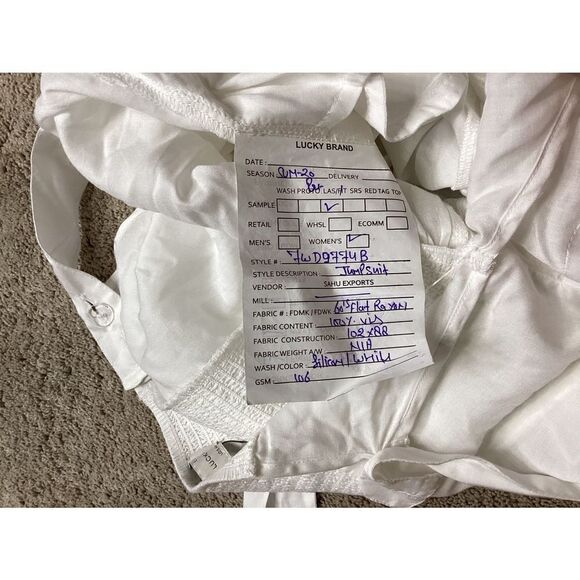 LUCKY BRAND
DATE:
SEASON SUM-20 DELIVERY
WASH PROTO LAS/FIT SRS RED TAG TOP
SAMPLE
RETAIL WHSL ECOMM
MEN'S WOMEN'S
STYLE #: 7WD9774B
STYLE DESCRIPTION Jumpsuit
VENDOR SAHU EXPORTS
MILL
FABRIC #: FDMK / FDWK 60's flat Rayon
FABRIC CONTENT 100% vis
FABRIC CONSTRUCTION 102x88
FABRIC WEIGHT A/W N/A
WASH /COLOR: Silicon/White
GSM 106
LUCK